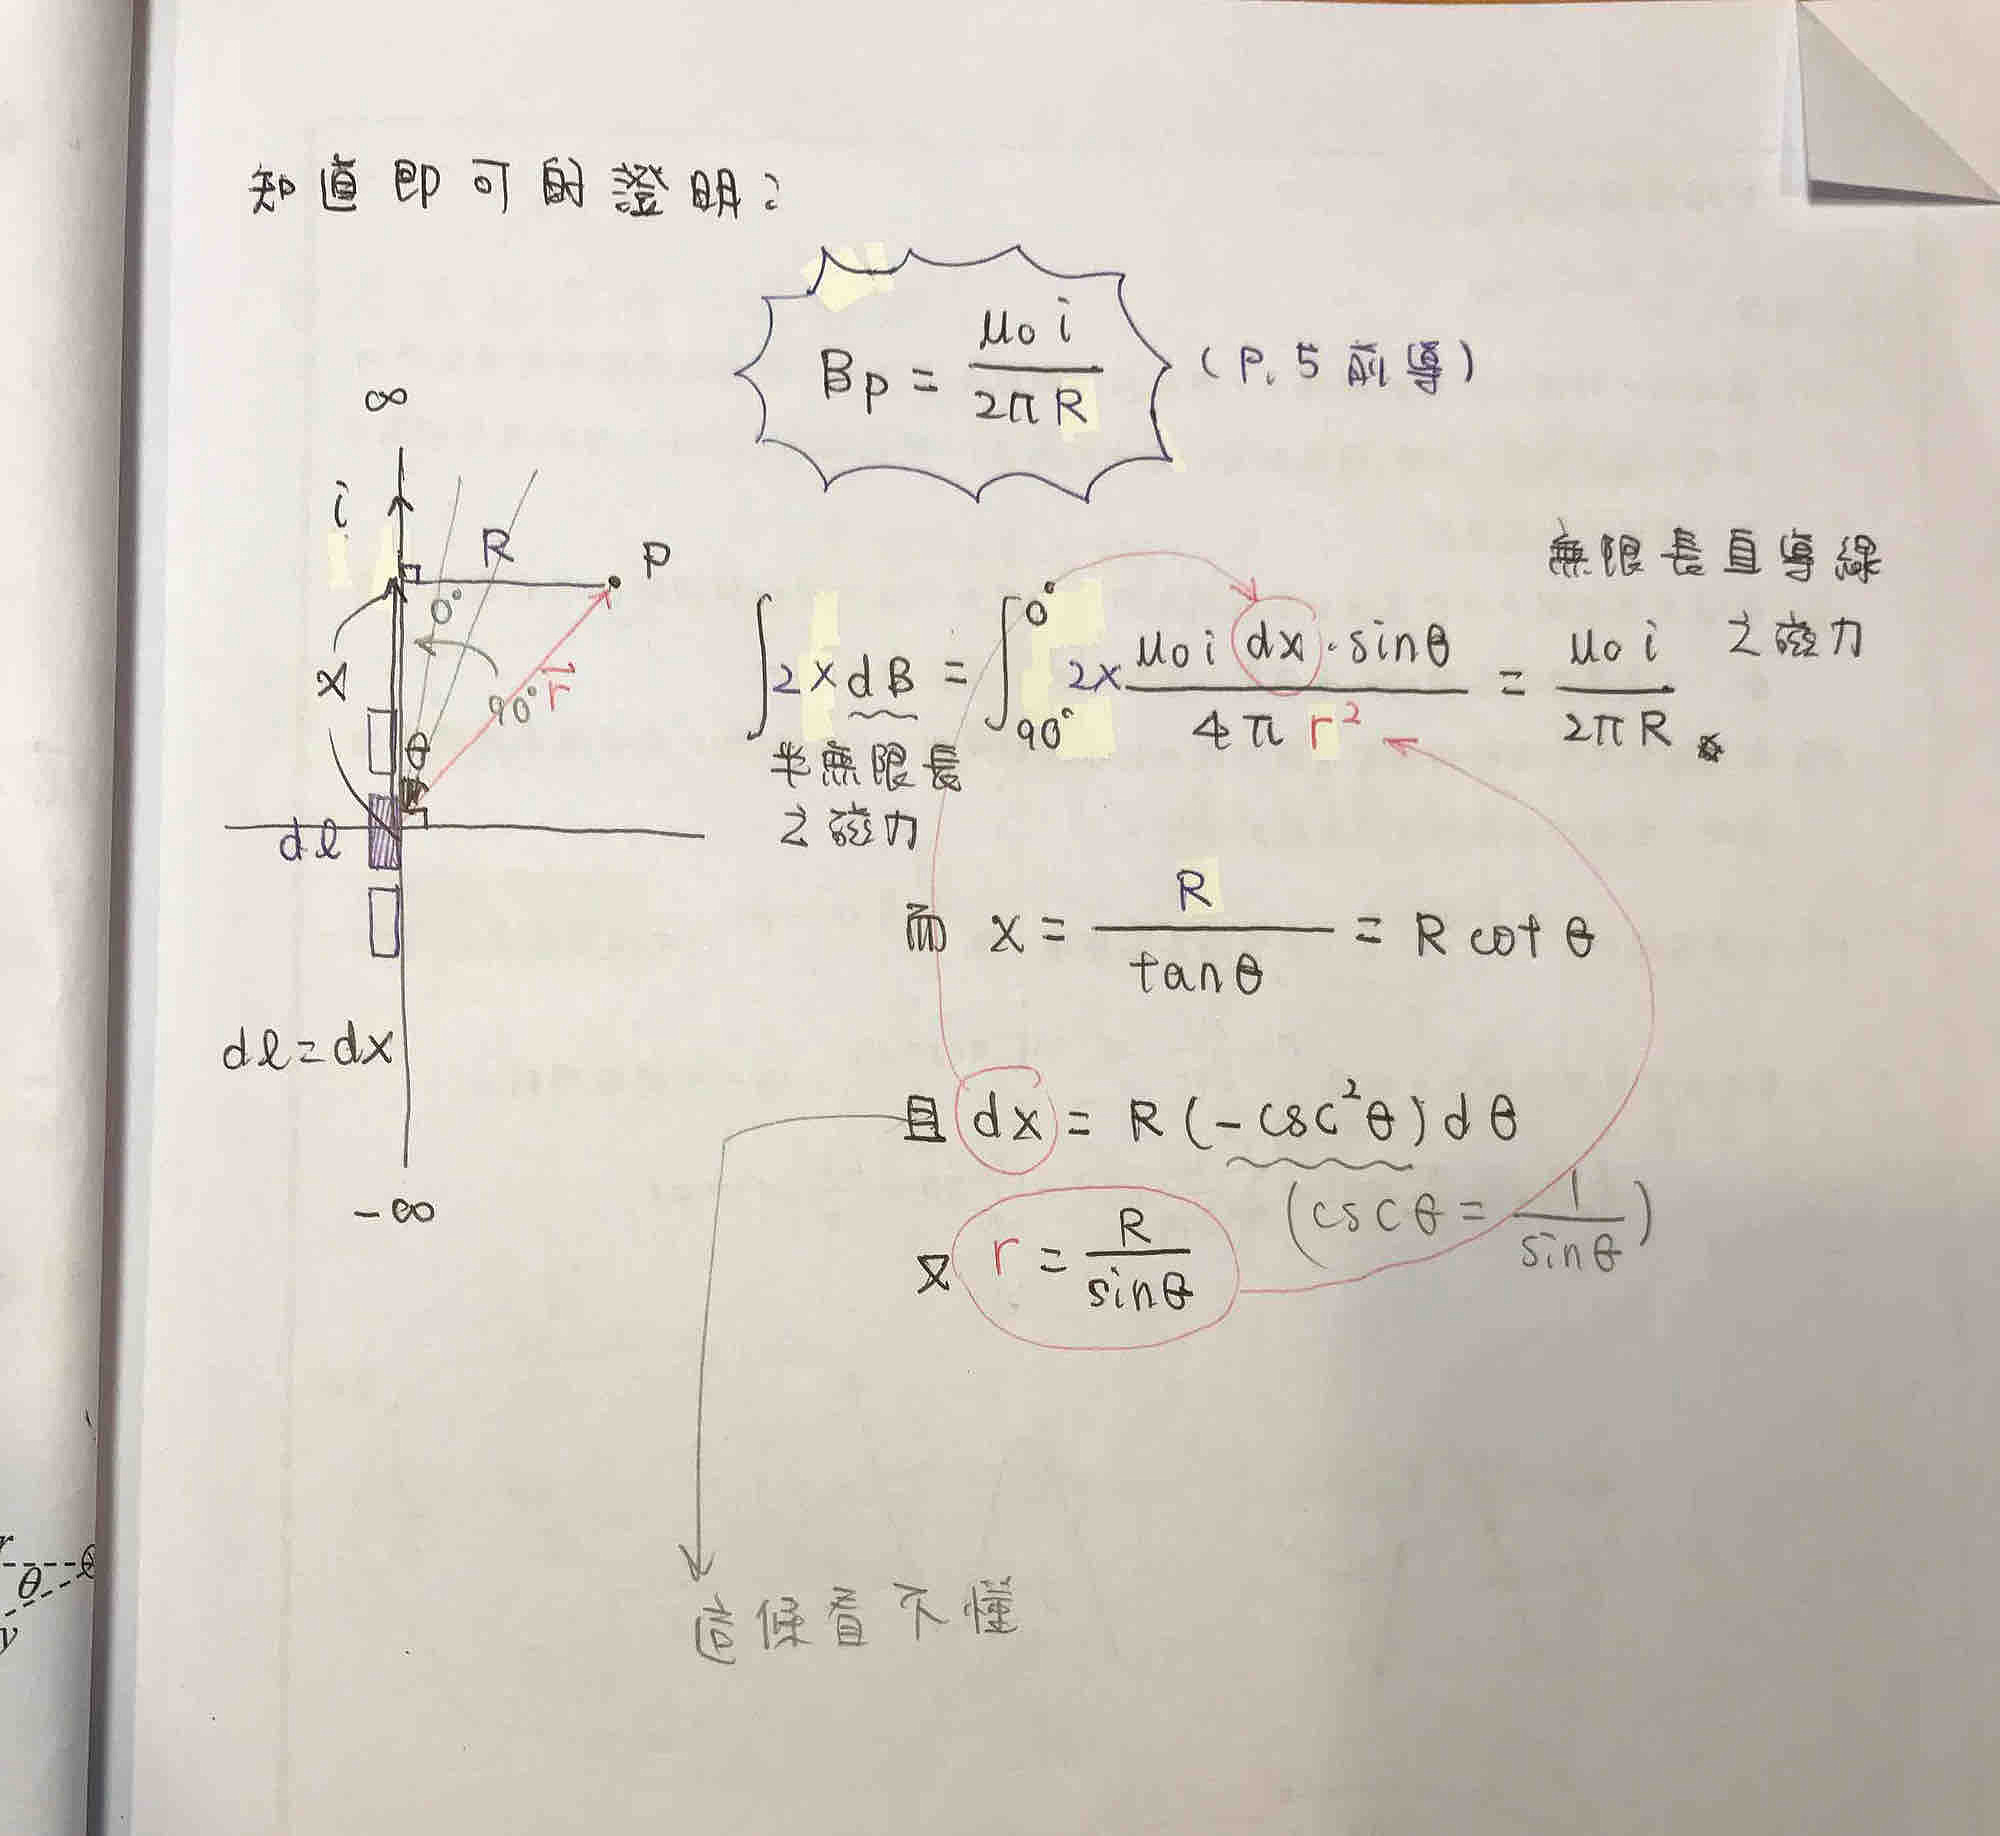 知道即可的證明：
Bp = μ₀i / 2πR (P.5 前導)
∞
i
R
P
0°
X
90°
r⃗
θ
dℓ
dℓ=dx
-∞
∫2×dB = ∫_{90°}^{0°} 2× μ₀i dx·sinθ / 4πr² = μ₀i / 2πR
無限長直導線
之磁力
半無限長
之磁力
而 x = R / tanθ = R cotθ
且 dx = R(-csc²θ)dθ
(cscθ = 1 / sinθ)
又 r = R / sinθ
這條看不懂
r
θ
y